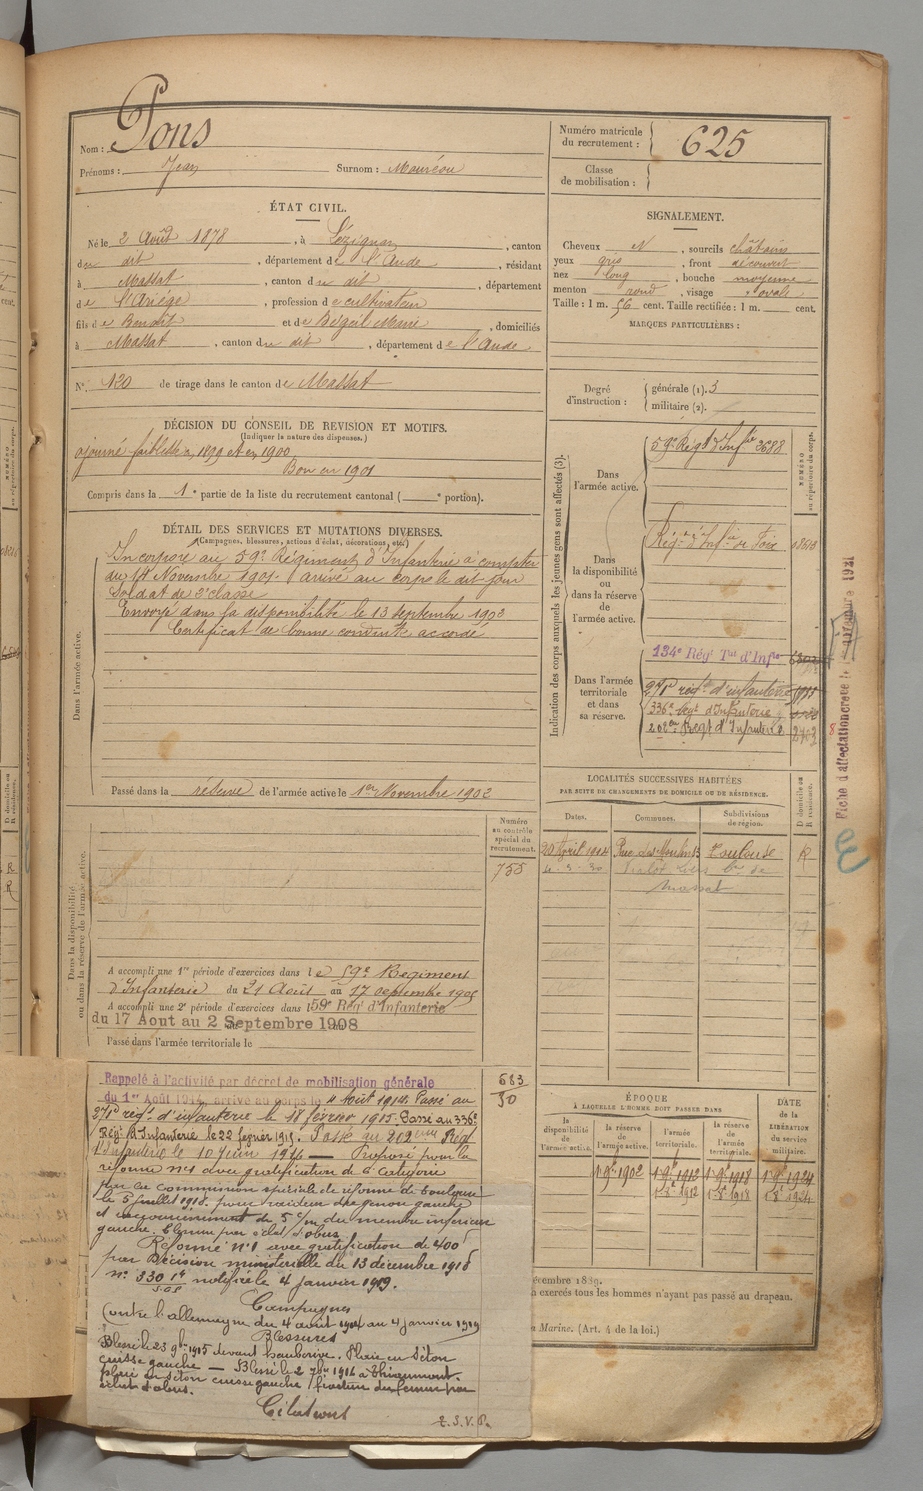 Nom : Pons
Prénoms : Jean Surnom : Mouréou
ÉTAT CIVIL.
Né le 2 Août 1878, à Lézignan, canton
du dit, département de l'Aude, résidant
à Massat, canton du dit, département
de l'Ariège, profession de cultivateur
fils de Benoit et de Bégeil Marie, domiciliés
à Massat, canton du dit, département de l'Aude
N°. 120 de tirage dans le canton de Massat
DÉCISION DU CONSEIL DE REVISION ET MOTIFS.
(Indiquer la nature des dispenses.)
ajourné faiblesse 1899 et en 1900
Bon en 1901
Compris dans la 1e partie de la liste du recrutement cantonal ( e portion).
DÉTAIL DES SERVICES ET MUTATIONS DIVERSES.
(Campagnes, blessures, actions d'éclat, décorations, etc.)
Dans l'armée active.
Incorporé au 59e Régiment d'Infanterie à compter
du 14 Novembre 1901 arrivé au corps le dit jour
Soldat de 2e classe
Envoyé dans la disponibilité le 13 septembre 1902
Certificat de bonne conduite accordé
Passé dans la réserve de l'armée active le 1er Novembre 1902
Dans la disponibilité
ou dans la réserve de l'armée active.
Numéro
au contrôle
spécial du
recrutement.
755
A accompli une 1re période d'exercices dans le 59e Régiment
d'Infanterie du 21 Août au 17 septembre 1905
A accompli une 2e période d'exercices dans l 59e Rég d'Infanterie
du 17 Aout au 2 Septembre 1908
Passé dans l'armée territoriale le
683
50
Rappelé à l'activité par décret de mobilisation générale
du 1er Août 1914, arrivé au corps le 4 Août 1914. Passé au
271e rég. d'infanterie le 18 février 1915. Passé au 336e
Régt d'Infanterie le 22 février 1915. Passé au 202eme Rég
d'Infanterie le 10 juin 1916 — Proposé pour la
réforme n°1 avec gratification de 6e catégorie
par la commission spéciale de réforme de Toulouse
le 5 juillet 1918. pour raideur du genou gauche
et raccourcissement de 5 c/m du membre inférieur
gauche. Blessure par éclat d'obus.
Réformé n°1 avec gratification de 400f
par Décision ministérielle du 13 décembre 1918
n° 330 notifiée le 4 janvier 1919.
Campagnes
Contre l'allemagne du 4 août 1914 au 4 janvier 1919
Blessures
Blessé le 23 9bre 1915 devant. Plaie en séton
cuisse gauche — Blessé le 2 7bre 1916 à Thiaumont.
plaie en séton cuisse gauche, fracture du femur par
éclat d'obus.
Citations
T.S.V.P.
Numéro matricule
du recrutement : 625
Classe
de mobilisation :
SIGNALEMENT.
Cheveux N, sourcils châtains
yeux gris, front découvert
nez long, bouche moyenne
menton rond, visage ovale
Taille : 1 m. 56 cent. Taille rectifiée : 1 m. cent.
MARQUES PARTICULIÈRES :
Degré
d'instruction :
générale (1). 3
militaire (2).
Indication des corps auxquels les jeunes gens sont affectés (3).
NUMÉRO
au répertoire du corps.
Dans
l'armée active.
59e Régt d'Infie 2688
Dans
la disponibilité
ou
dans la réserve
de
l'armée active.
Régt d'Infie de Foix
Dans l'armée
territoriale
et dans
sa réserve.
134e Régt Tal d'Infie
271e régt d'infanterie
336e Regt d'Infanterie
202eme Regt d'Infanterie
LOCALITÉS SUCCESSIVES HABITÉES
PAR SUITE DE CHANGEMENTS DE DOMICILE OU DE RÉSIDENCE.
Dates. Communes. Subdivisions
de région.
D domicile ou
R résidence.
20 Avril 1904 Rue des Toulouse R
Massat
ÉPOQUE
À LAQUELLE L'HOMME DOIT PASSER DANS
la
disponibilité
de
l'armée active.
la
réserve
de
l'armée active.
l'armée
territoriale.
la
réserve
de
l'armée
territoriale.
DATE
de la
LIBÉRATION
du service
militaire.
1 9bre 1902 1 9bre 1912 1 9bre 1918 1 9bre 1924
1912 1918 1924
écembre 1889.
exercés tous les hommes n'ayant pas passé au drapeau.
Marine. (Art. 4 de la loi.)